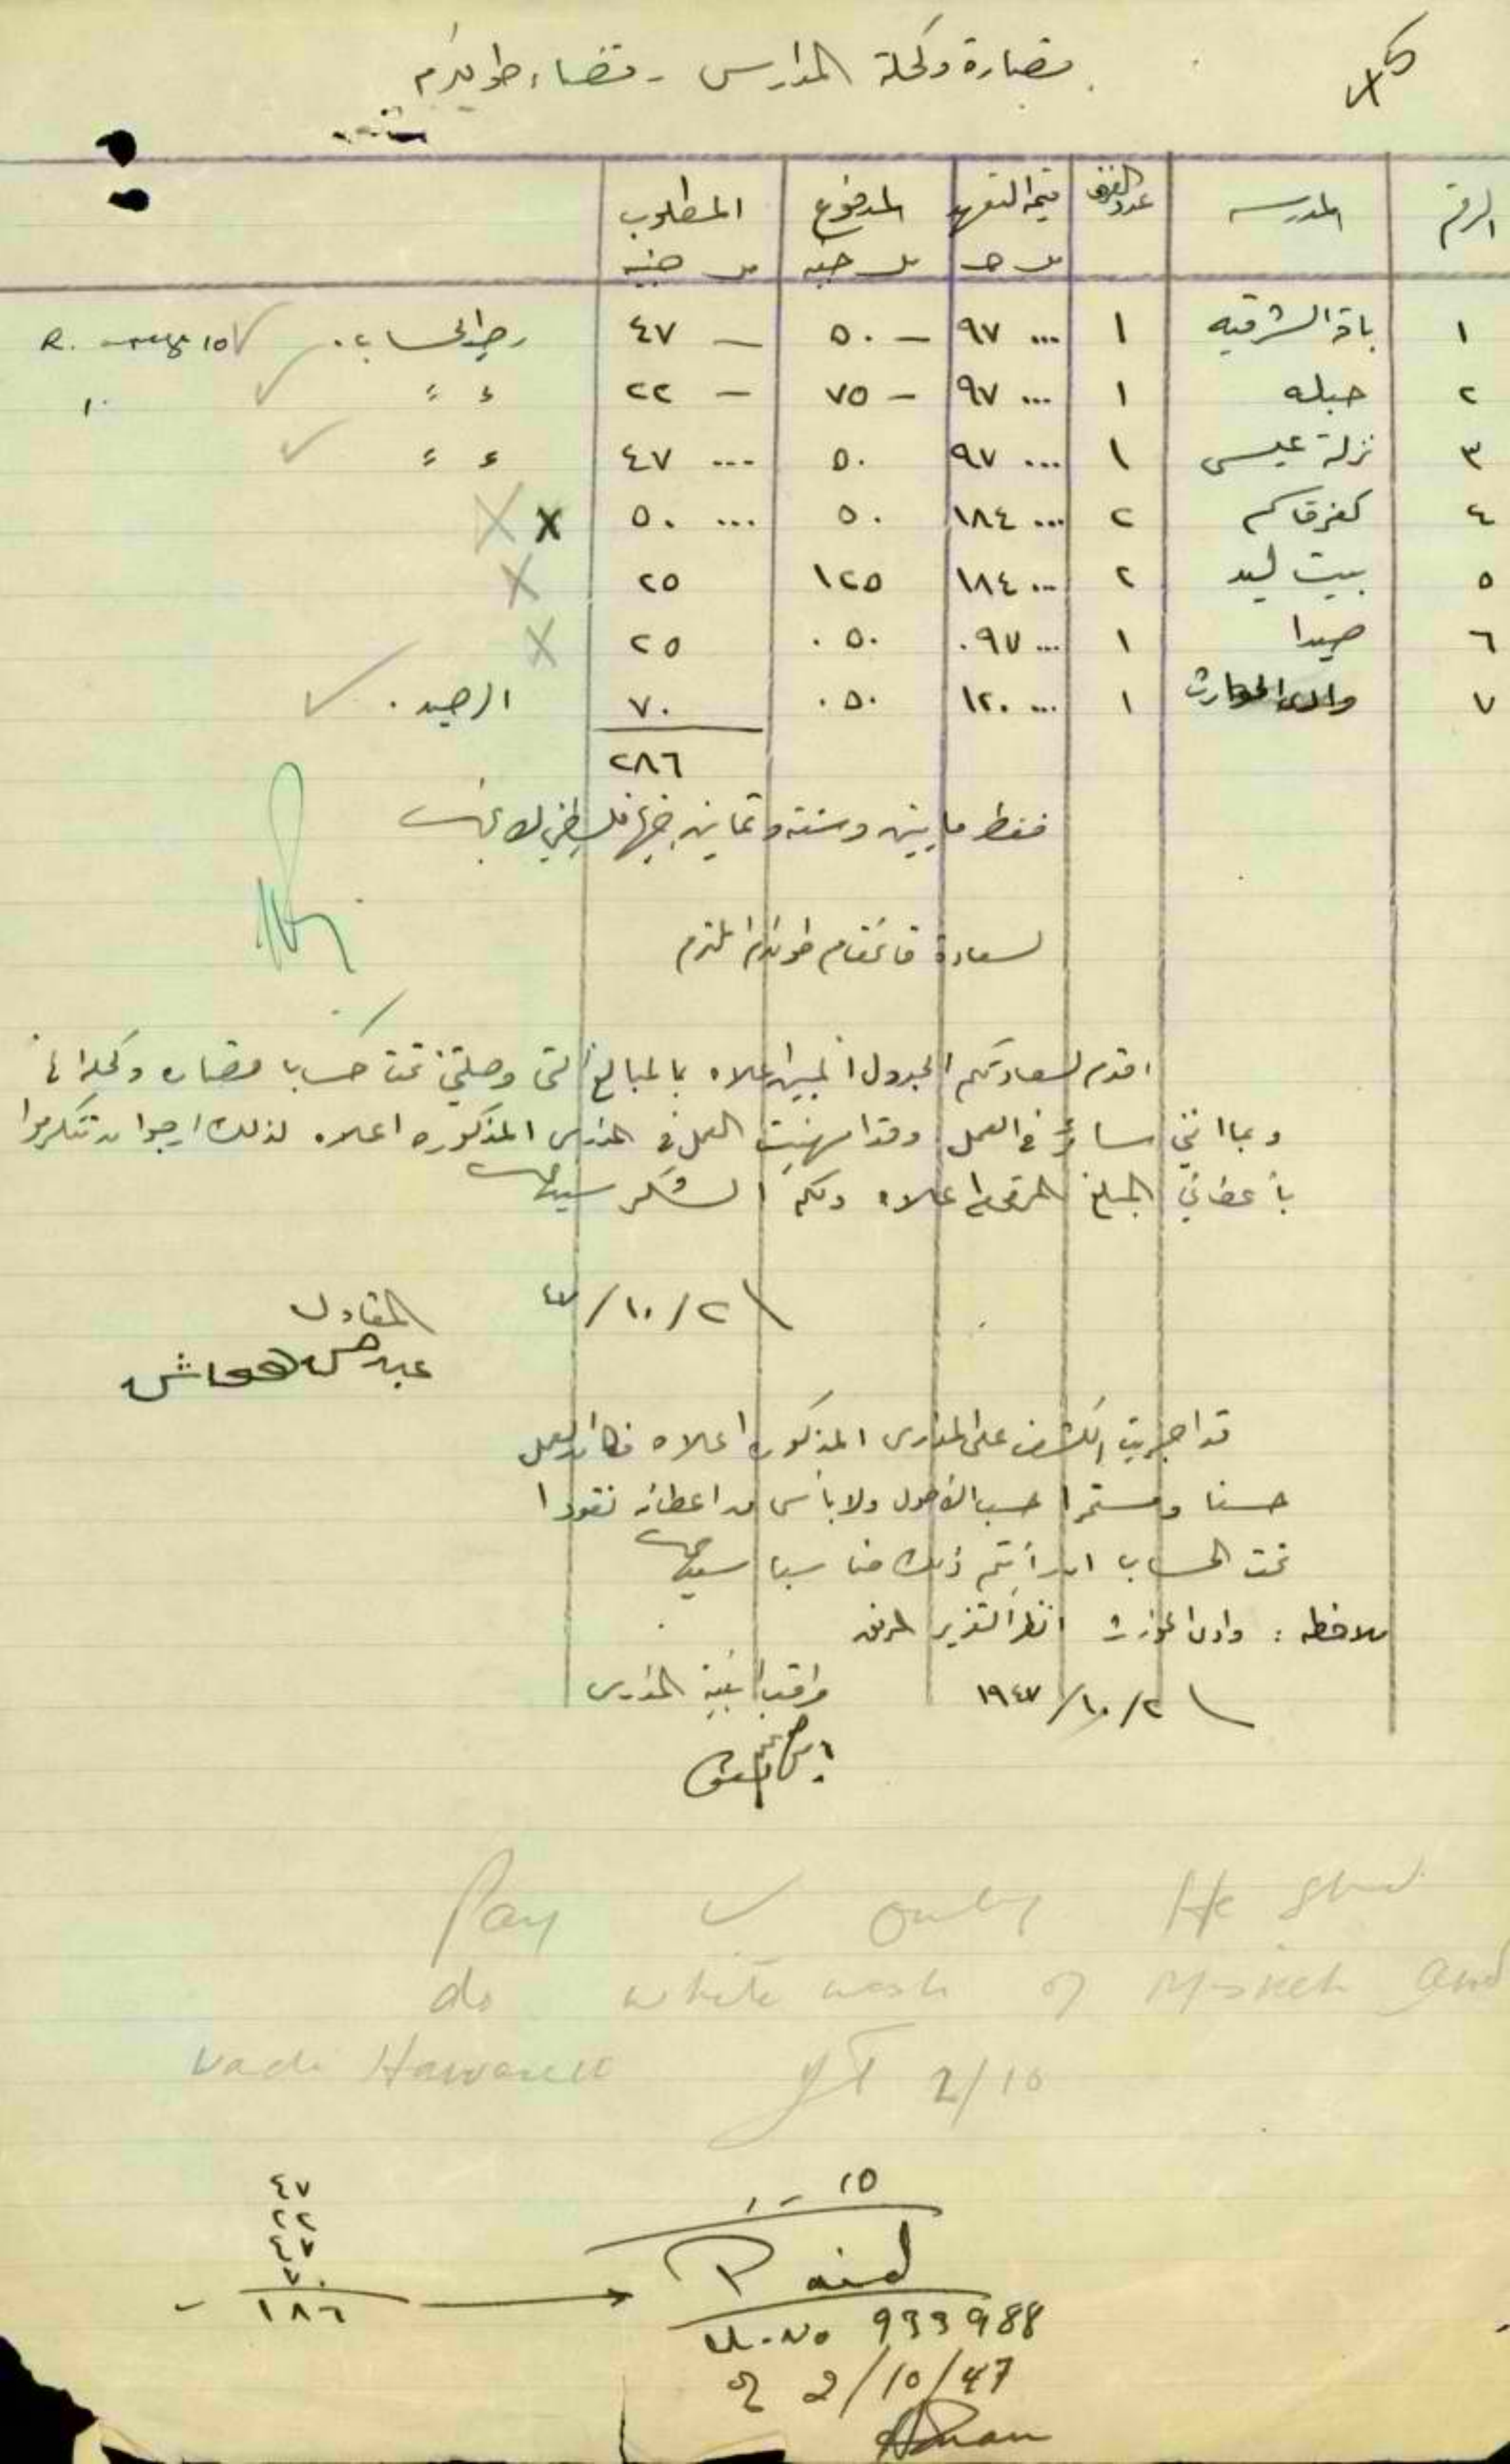 قصارة وكحلة المدارس - قضاء طولكرم
الرقم المدرسه عدد الغرف قيمة التعهد المدفوع المطلوب
مل ج مل جنيه مل جنيه
١ باقة الشرقيه ١ ... ٩٧ - ٥٠ - ٤٧ رصيد الحساب.
٢ حبله ١ ... ٩٧ - ٧٥ - ٢٢ " "
٣ نزلة عيسى ١ ... ٩٧ ٥٠ ... ٤٧ " "
٤ كفرقاسم ٢ ... ١٨٤ ٥٠ ... ٥٠ X X
٥ بيت ليد ٢ ... ١٨٤ ١٢٥ ٢٥ X
٦ صيدا ١ ... ٩٧ ٥٠ ٢٥ X
٧ وادى الحوارث ١ ... ١٢٠ ٥٠ ٧٠ الرصيد.
٢٨٦
فقط مايتين وسته وثمانين جنيها فلسطيني لا غير
لسعادة قائمقام طولكرم المحترم
اقدم لسعادتكم الجدول المبين اعلاه بالمبالغ التي وصلتني تحت حساب قصاره وكحلة
وبما انني سائر في العمل وقد انهيت العمل في المدارس المذكوره اعلاه لذلك ارجو ان تتكرموا
بأعطائي المبلغ المرقوم اعلاه ولكم الشكر سيدي
٢/١٠/٤٧
المقاول
عبد حسن هواش
قد اجريت الكشف على المدارس المذكوره اعلاه فكان العمل
حسنا ومستمرا حسب الاصول ولا بأس من اعطائه نقودا
تحت الحساب ان رأيتم ذلك مناسبا سيدي
ملاحظه : وادى الحوارث انظر التقرير المرفق
٢/١٠/١٩٤٧ مراقب ابنية المدارس
Pay ✓ only He shd.
do white wash of Miskeh and
Wadi Hawareth 2/10
٤٧
٢٢
٤٧
٧٠
١٨٦ → Paid
No 933988
of 2/10/47